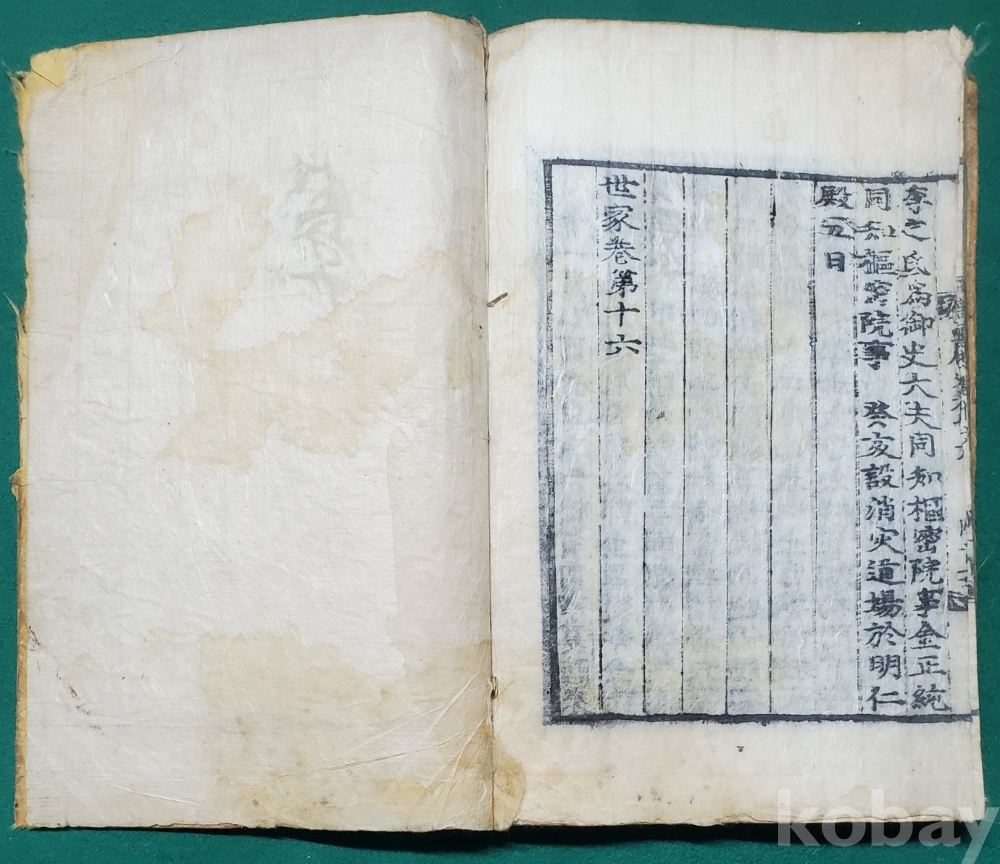 李之氐為御史大夫同知樞密院事金正純
同知樞密院事 癸亥設消灾道場於明仁
殿五日
世家卷第十六
kobay